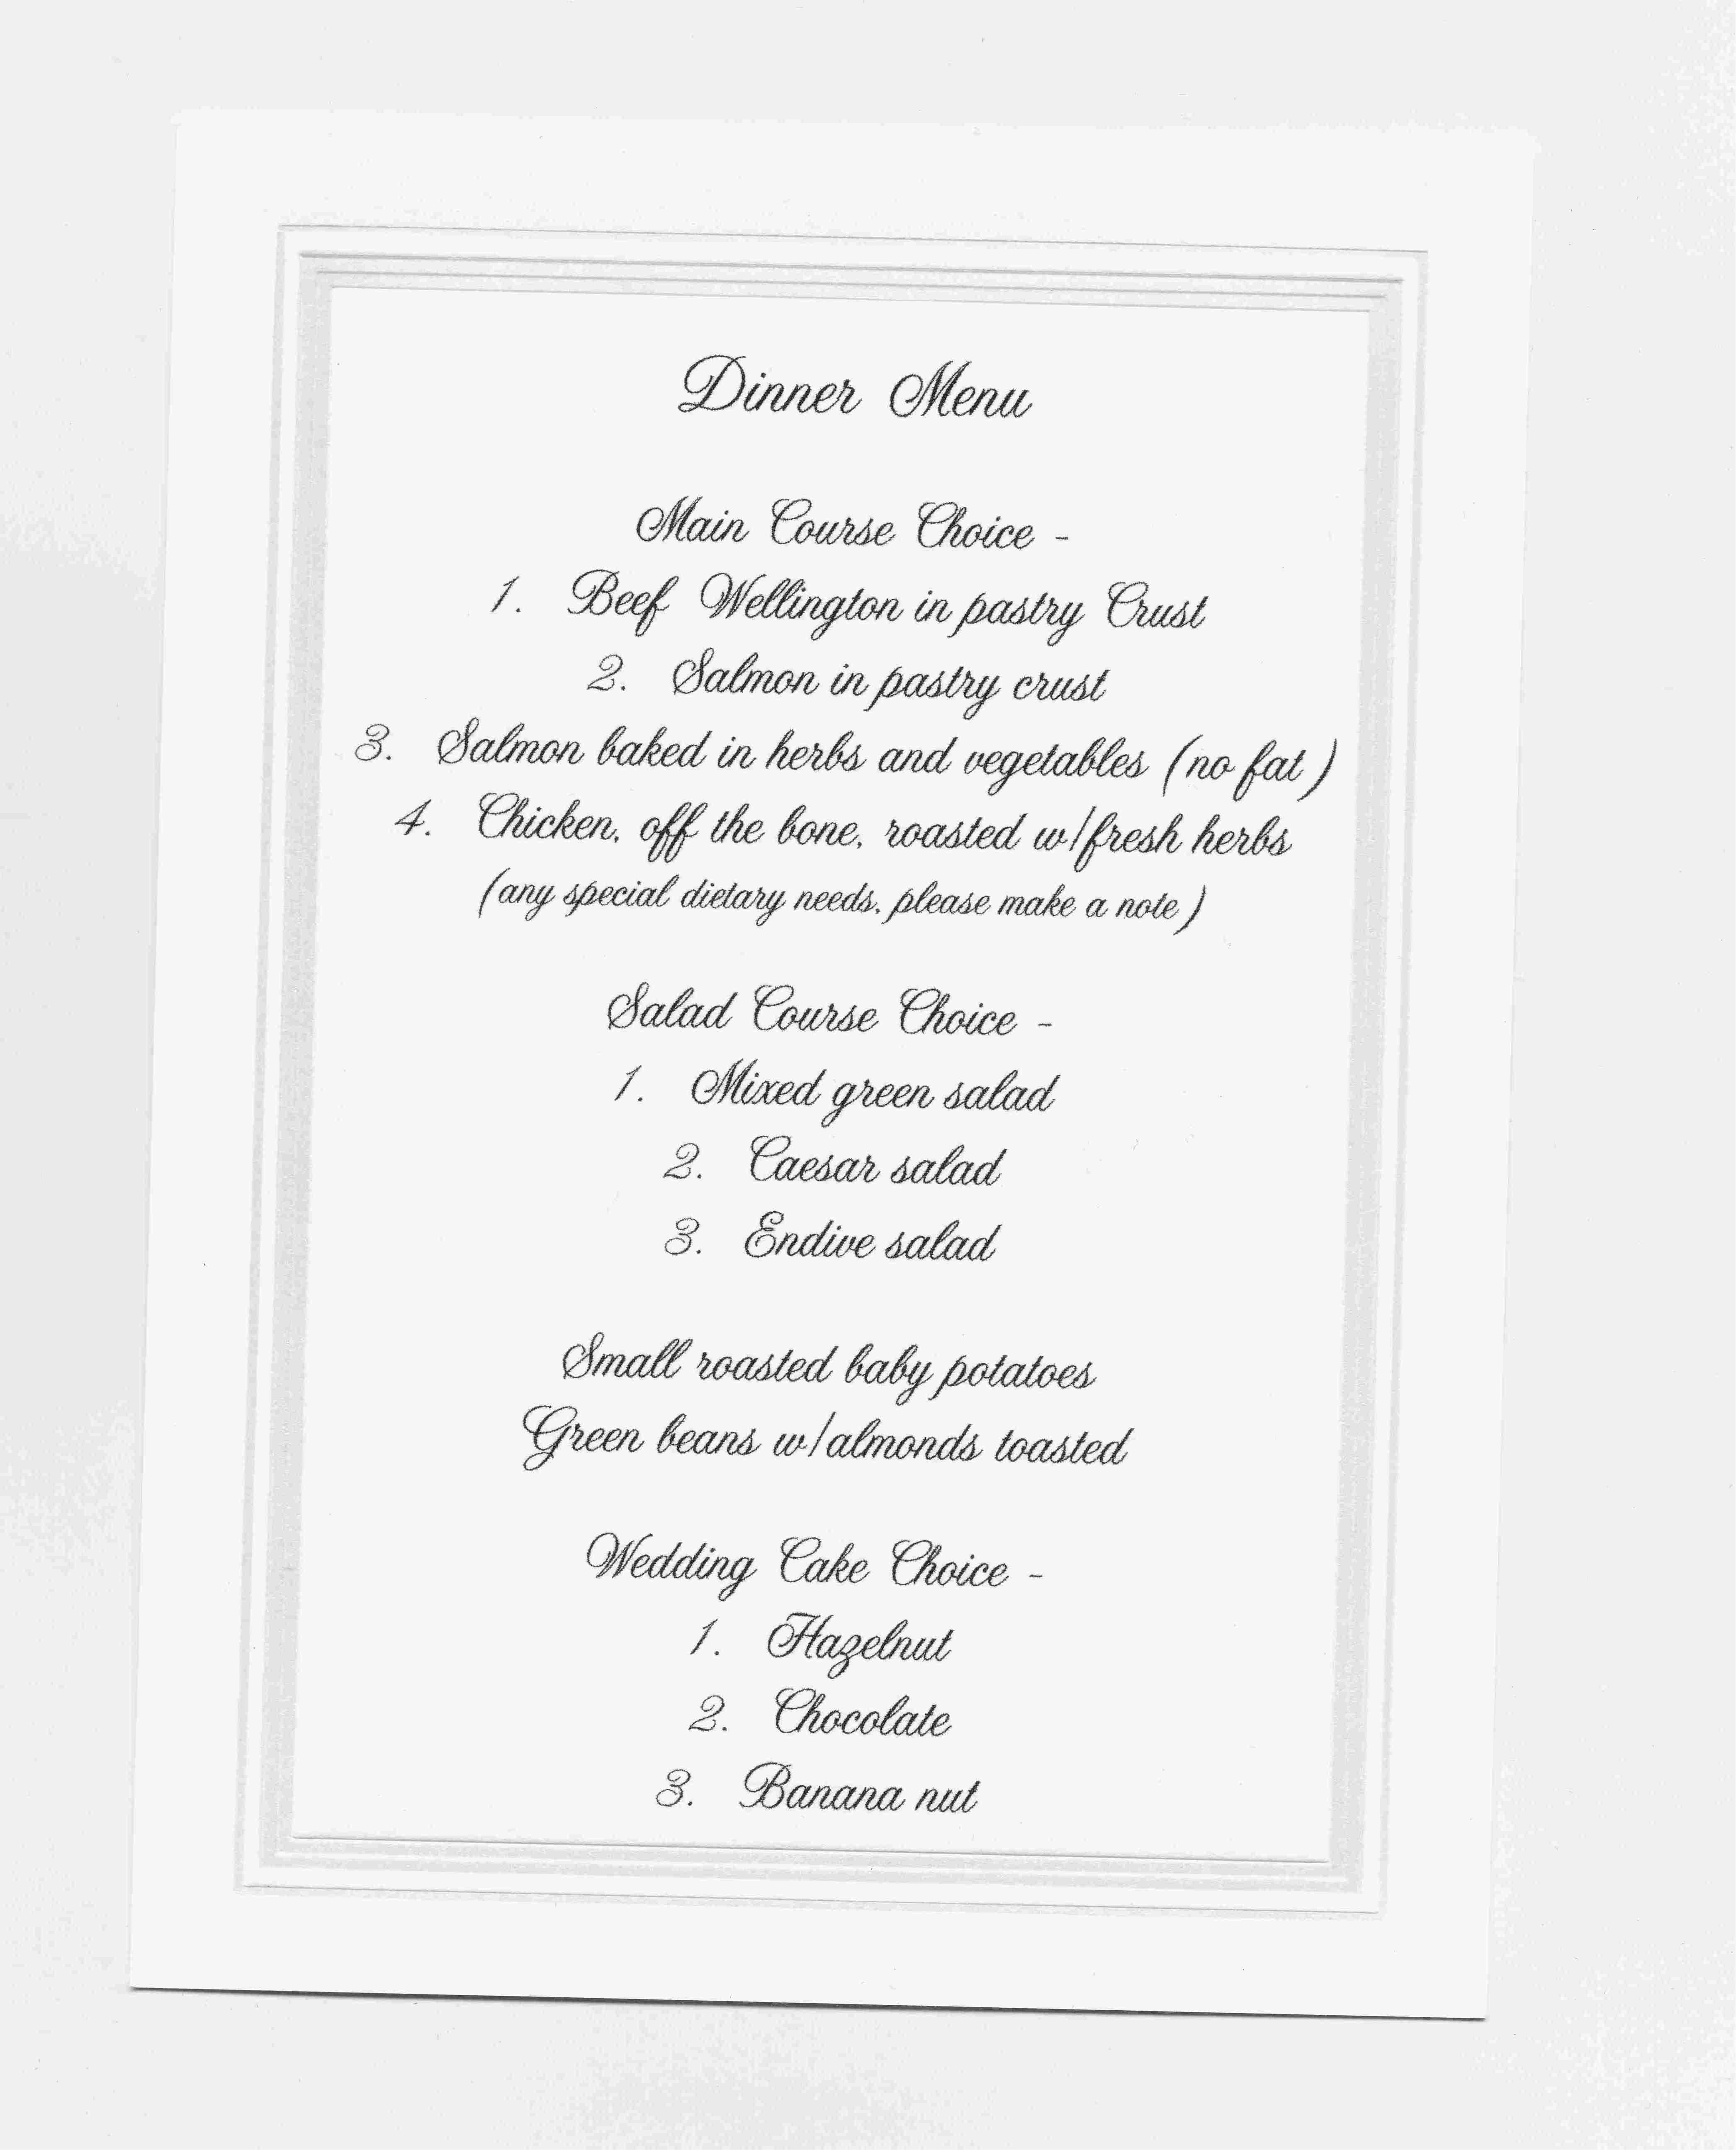 Dinner Menu
Main Course Choice -
1. Beef Wellington in pastry Crust
2. Salmon in pastry crust
3. Salmon baked in herbs and vegetables (no fat)
4. Chicken, off the bone, roasted w/fresh herbs
(any special dietary needs, please make a note)
Salad Course Choice -
1. Mixed green salad
2. Caesar salad
3. Endive salad
Small roasted baby potatoes
Green beans w/almonds toasted
Wedding Cake Choice -
1. Hazelnut
2. Chocolate
3. Banana nut